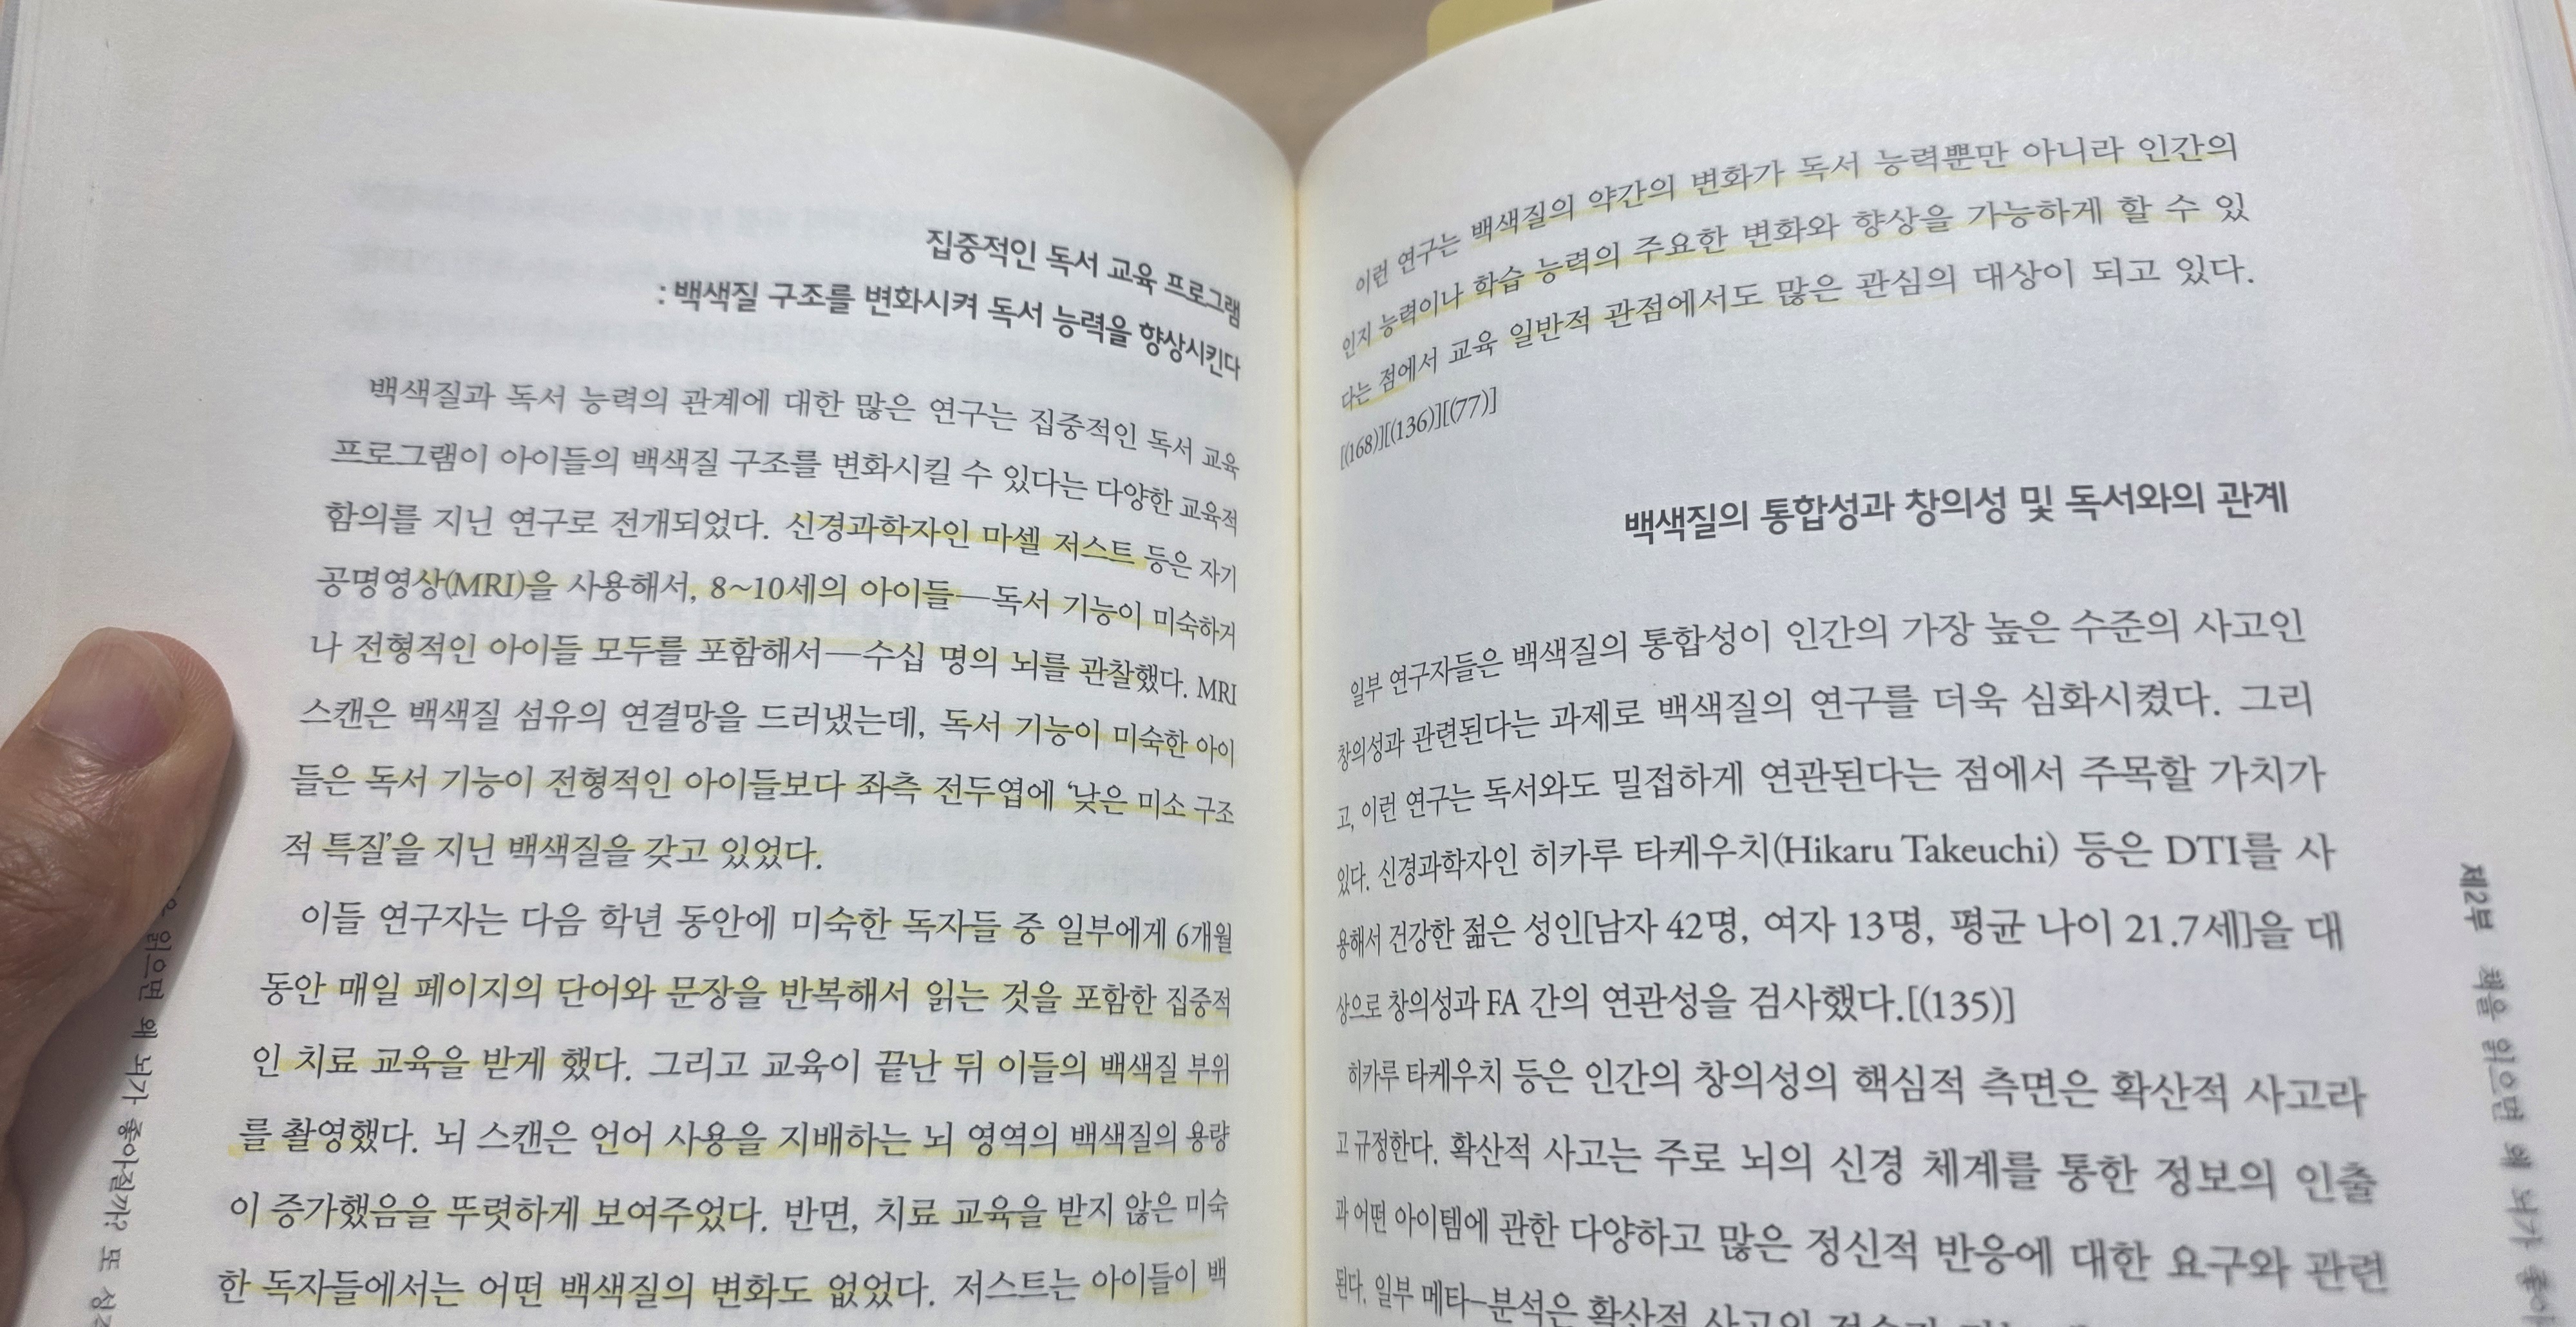 집중적인 독서 교육 프로그램
: 백색질 구조를 변화시켜 독서 능력을 향상시킨다
백색질과 독서 능력의 관계에 대한 많은 연구는 집중적인 독서 교육
프로그램이 아이들의 백색질 구조를 변화시킬 수 있다는 다양한 교육적
함의를 지닌 연구로 전개되었다. 신경과학자인 마셀 저스트 등은 자기
공명영상(MRI)을 사용해서, 8~10세의 아이들—독서 기능이 미숙하거
나 전형적인 아이들 모두를 포함해서—수십 명의 뇌를 관찰했다. MRI
스캔은 백색질 섬유의 연결망을 드러냈는데, 독서 기능이 미숙한 아이
들은 독서 기능이 전형적인 아이들보다 좌측 전두엽에 '낮은 미소 구조
적 특질'을 지닌 백색질을 갖고 있었다.
이들 연구자는 다음 학년 동안에 미숙한 독자들 중 일부에게 6개월
동안 매일 페이지의 단어와 문장을 반복해서 읽는 것을 포함한 집중적
인 치료 교육을 받게 했다. 그리고 교육이 끝난 뒤 이들의 백색질 부위
를 촬영했다. 뇌 스캔은 언어 사용을 지배하는 뇌 영역의 백색질의 용량
이 증가했음을 뚜렷하게 보여주었다. 반면, 치료 교육을 받지 않은 미숙
한 독자들에서는 어떤 백색질의 변화도 없었다. 저스트는 아이들이 백
읽으면 왜 뇌가 좋아질까? 또 성
이런 연구는 백색질의 약간의 변화가 독서 능력뿐만 아니라 인간의
인지 능력이나 학습 능력의 주요한 변화와 향상을 가능하게 할 수 있
다는 점에서 교육 일반적 관점에서도 많은 관심의 대상이 되고 있다.
[(168)][(136)][(77)]
백색질의 통합성과 창의성 및 독서와의 관계
일부 연구자들은 백색질의 통합성이 인간의 가장 높은 수준의 사고인
창의성과 관련된다는 과제로 백색질의 연구를 더욱 심화시켰다. 그리
고, 이런 연구는 독서와도 밀접하게 연관된다는 점에서 주목할 가치가
있다. 신경과학자인 히카루 타케우치(Hikaru Takeuchi) 등은 DTI를 사
용해서 건강한 젊은 성인[남자 42명, 여자 13명, 평균 나이 21.7세]을 대
상으로 창의성과 FA 간의 연관성을 검사했다.[(135)]
히카루 타케우치 등은 인간의 창의성의 핵심적 측면은 확산적 사고라
고 규정한다. 확산적 사고는 주로 뇌의 신경 체계를 통한 정보의 인출
과 어떤 아이템에 관한 다양하고 많은 정신적 반응에 대한 요구와 관련
된다. 일부 메타-분석은 확산적 사고의
제2부 책을 읽으면 왜 뇌가 좋아